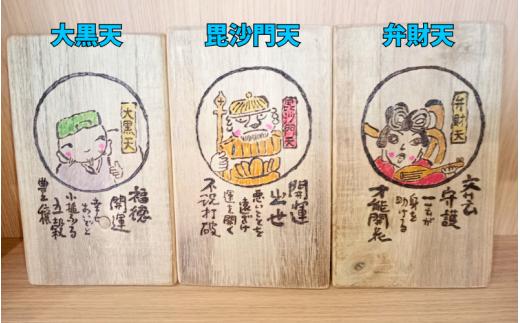 大黒天
毘沙門天
弁財天
大黒天
福徳
開運
幸を
小槌ふる
五穀
豊穣
毘沙門天
開運
出世
悪いことを
遠ざけ
運を開く
不況打破
弁財天
守護
芸が
身を
助ける
才能開花